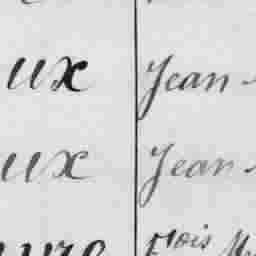 ux Jean
ux Jean
ure Fçois